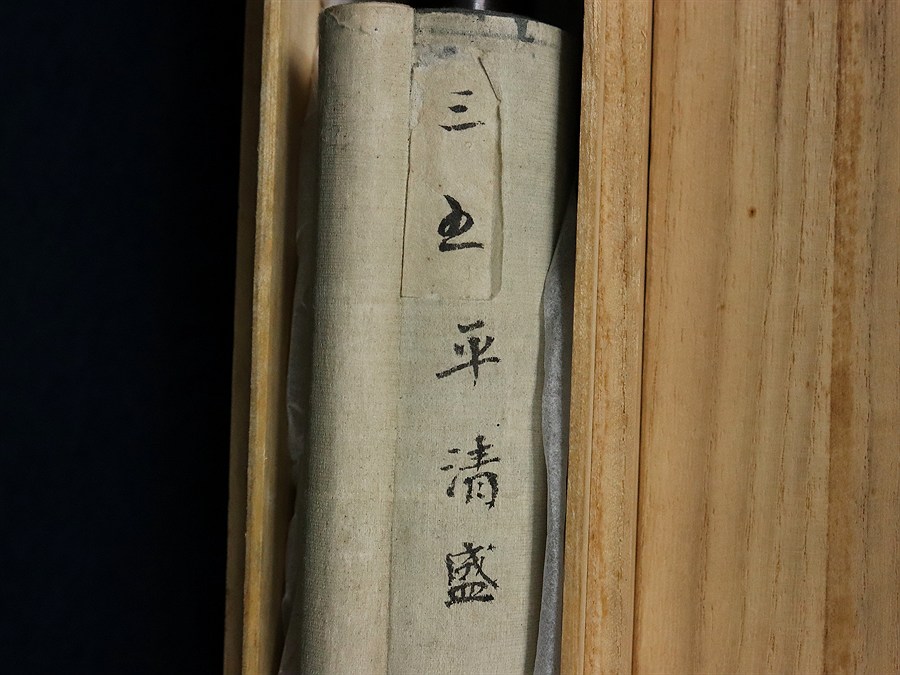 三五平清盛